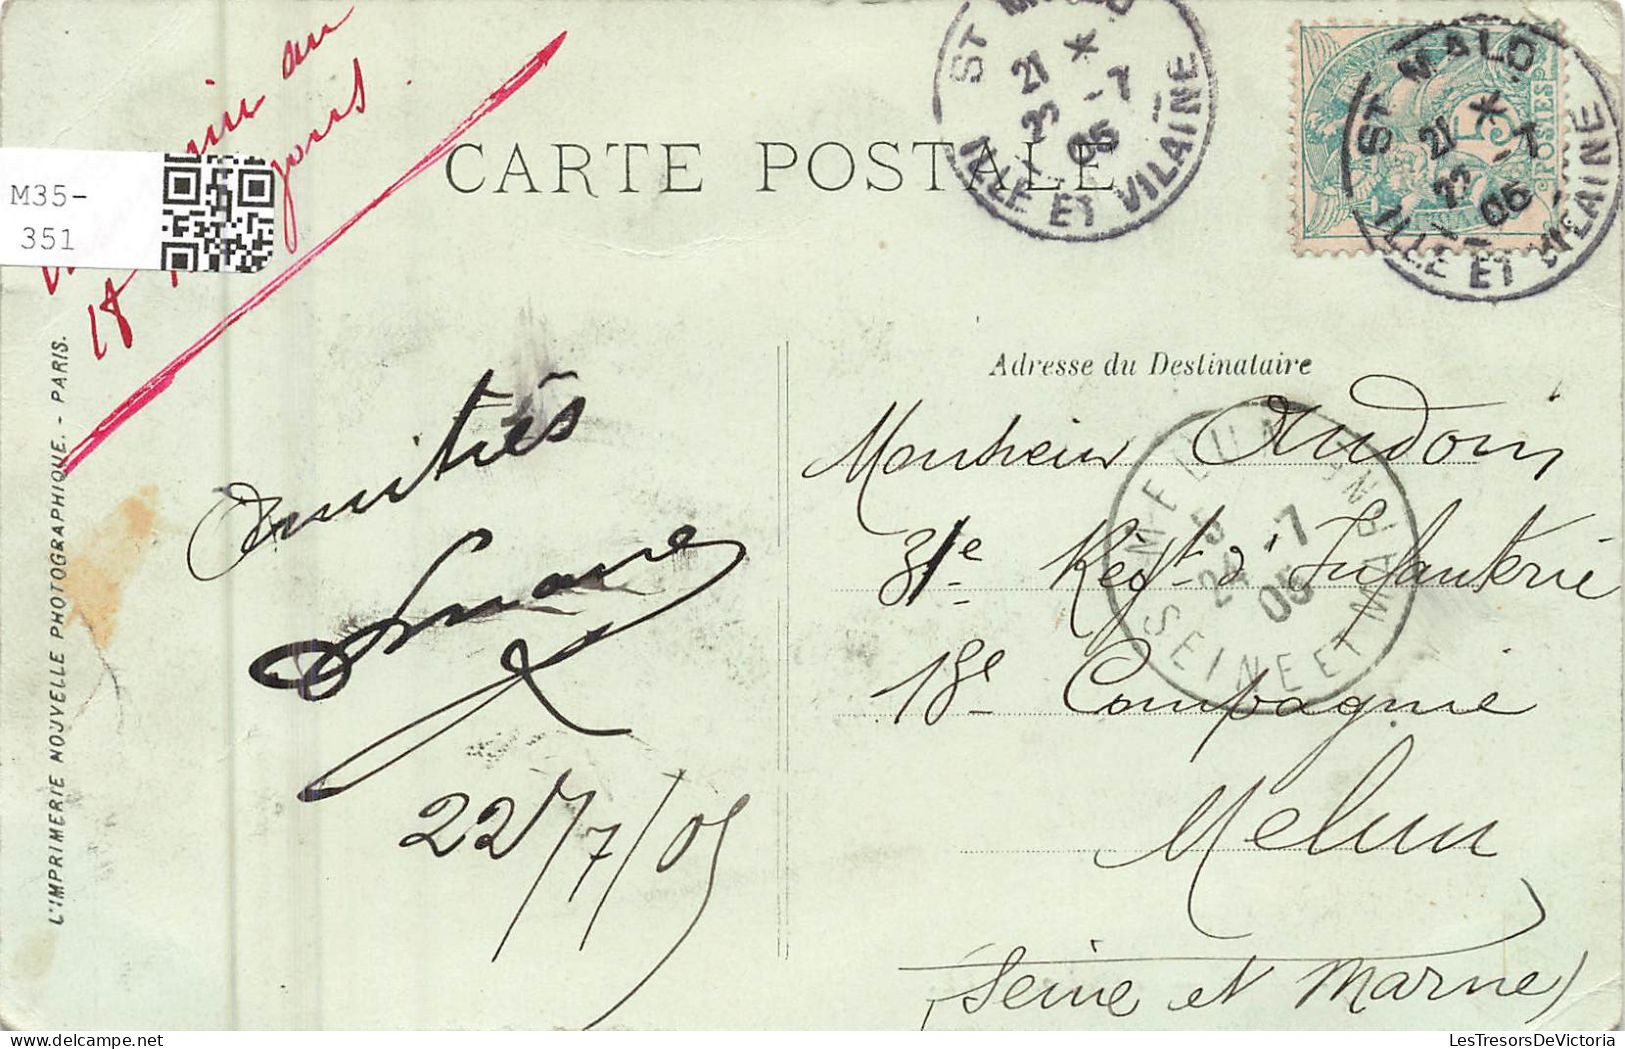 au
jours
18
M35-
351
CARTE POSTALE
ST MALO
21 *
22 -7
05
ILLE ET VILAINE
5
POSTES
ST MALO
21 *
22 -7
05
ILLE ET VILAINE
Adresse du Destinataire
Amitiés
22/7/05
Monsieur Audoin
31e Régt d'Infanterie
18e Compagnie
Melun
(Seine et Marne)
MELUN
24 -7
05
SEINE ET MARNE
L'IMPRIMERIE NOUVELLE PHOTOGRAPHIQUE. - PARIS.
LesTresorsDeVictoria